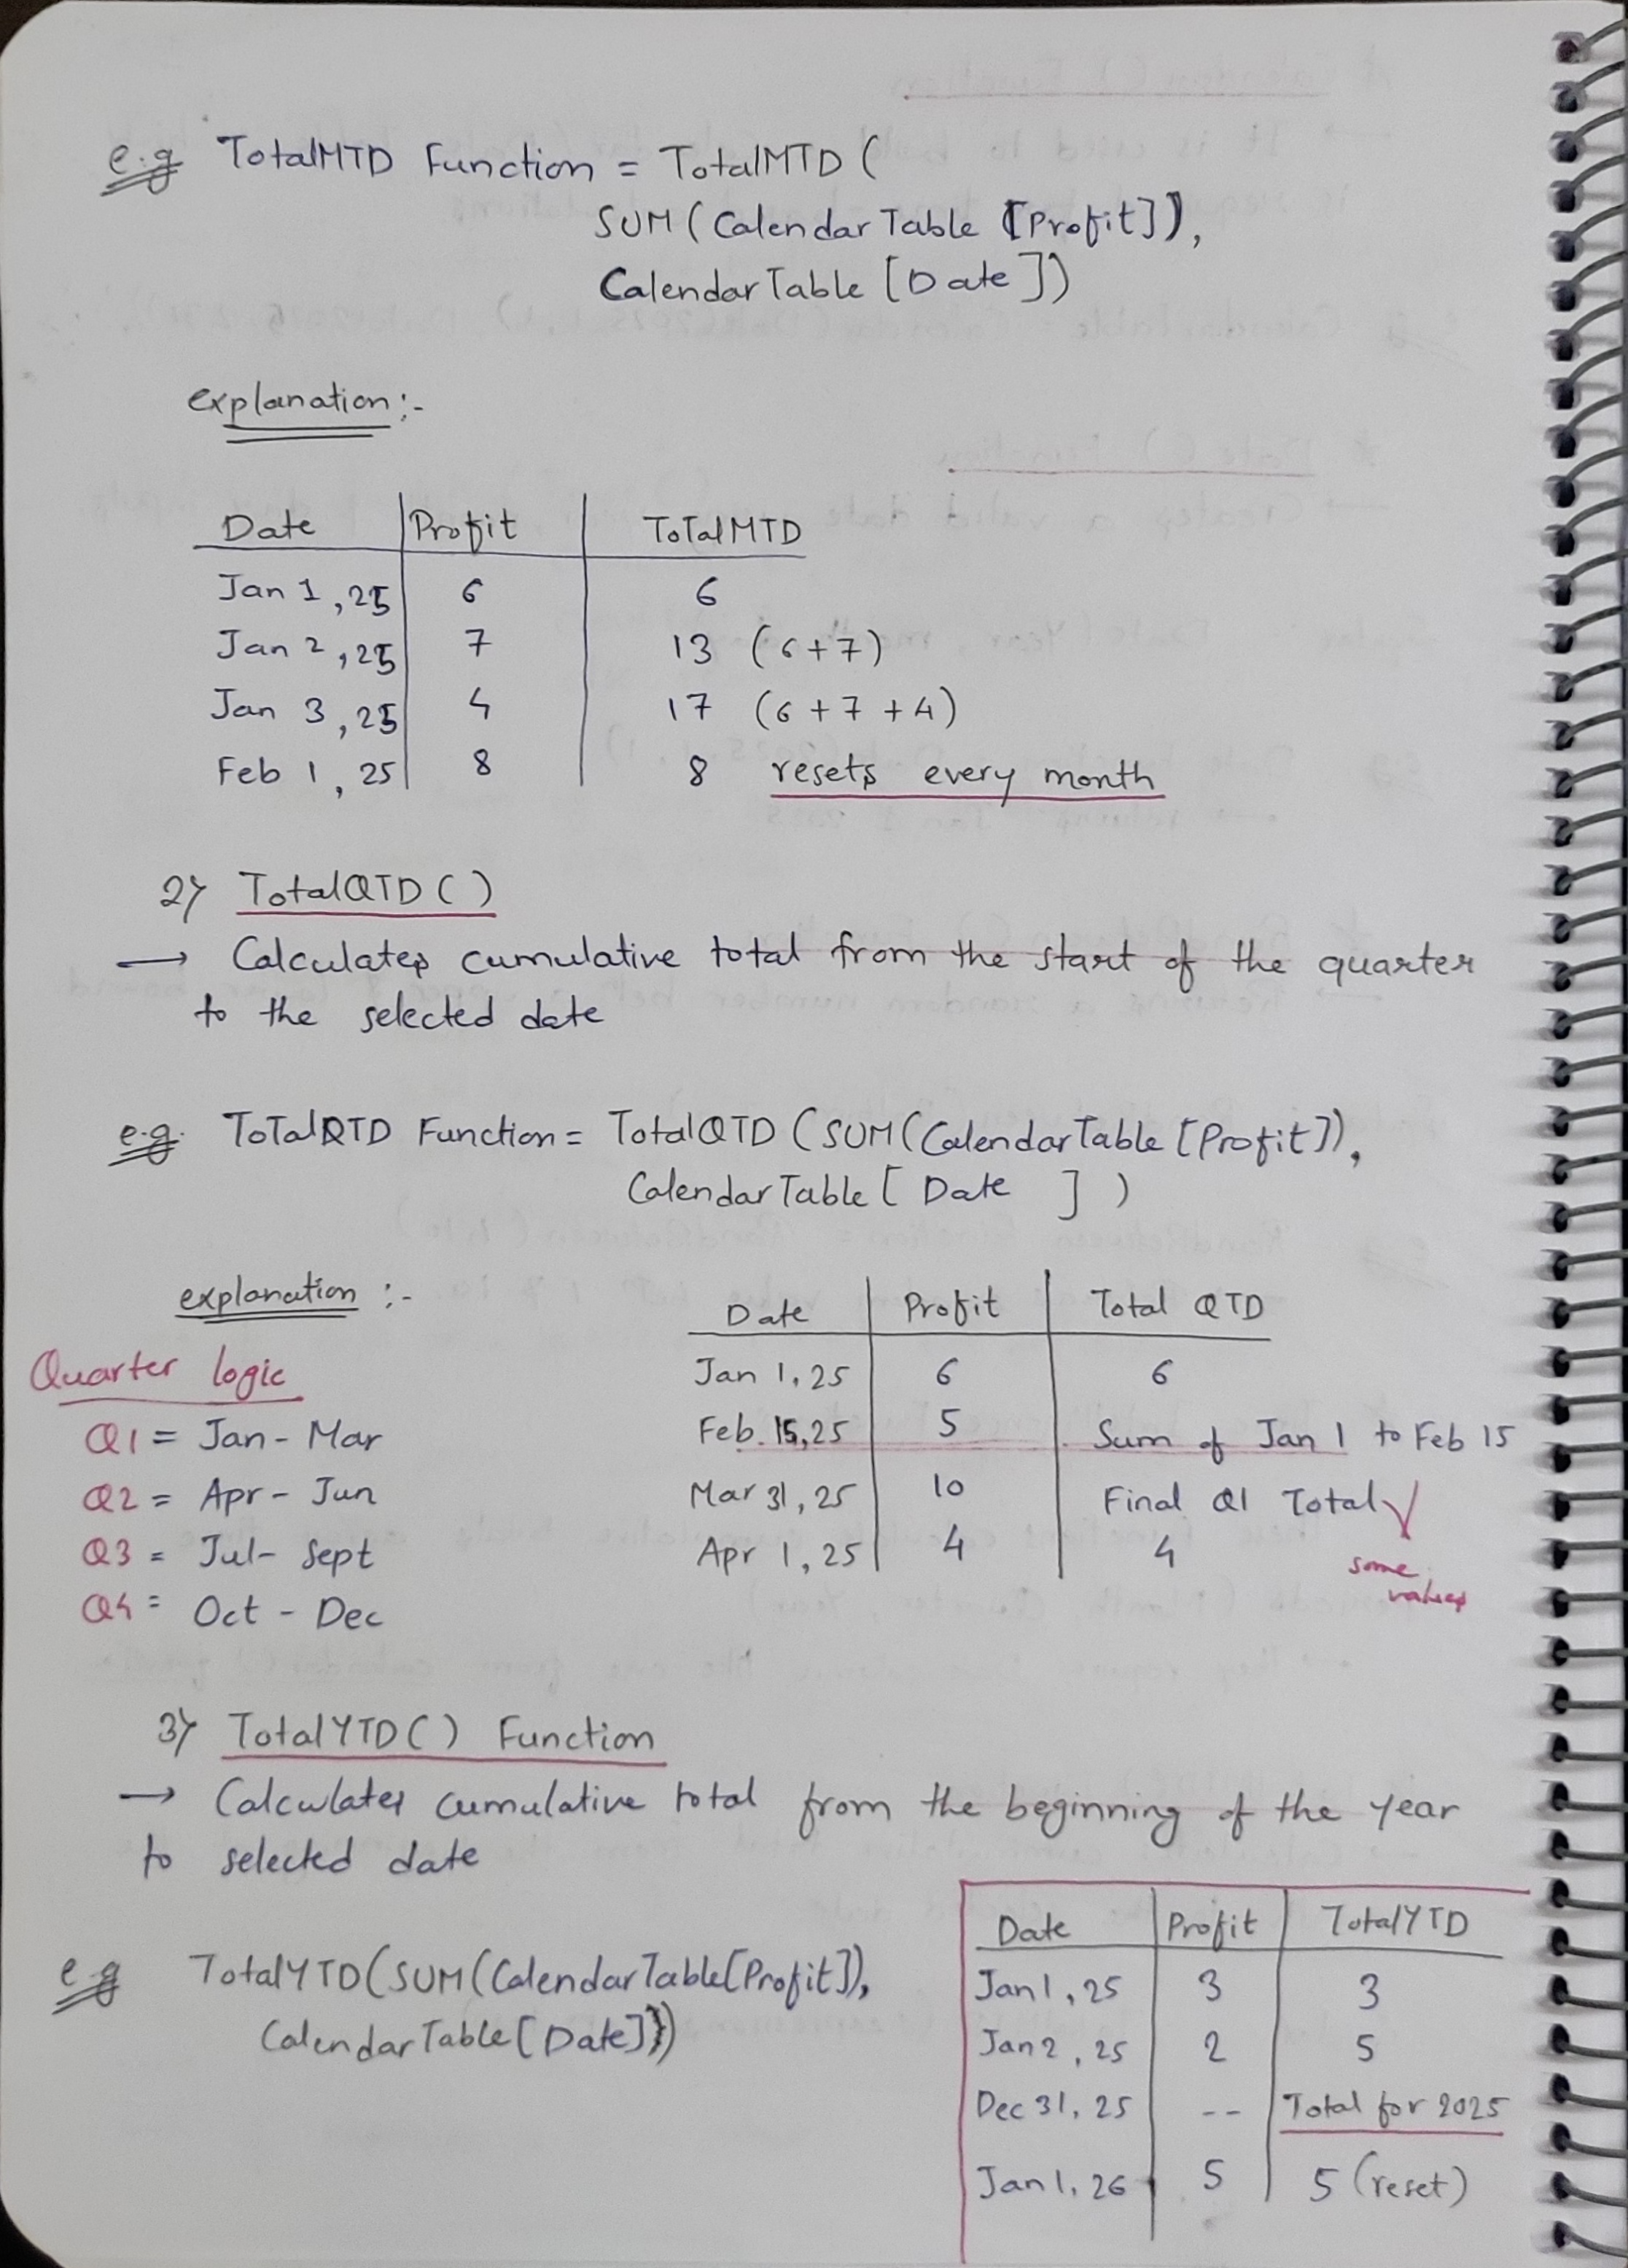 e.g TotalMTD Function = TotalMTD (
SUM (CalendarTable [Profit]),
CalendarTable [Date])
explanation :-
Date | Profit | ToTalMTD
Jan 1, 25 | 6 | 6
Jan 2, 25 | 7 | 13 (6+7)
Jan 3, 25 | 4 | 17 (6+7+4)
Feb 1, 25 | 8 | 8 resets every month
2) TotalQTD ( )
→ Calculates cumulative total from the start of the quarter
to the selected date
e.g. ToTalQTD Function = TotalQTD (SUM(CalendarTable [Profit]),
CalendarTable [ Date ] )
explanation :-
Quarter logic
Q1 = Jan - Mar
Q2 = Apr - Jun
Q3 = Jul - Sept
Q4 = Oct - Dec
Date | Profit | Total QTD
Jan 1, 25 | 6 | 6
Feb. 15, 25 | 5 | Sum of Jan 1 to Feb 15
Mar 31, 25 | 10 | Final Q1 Total
Apr 1, 25 | 4 | 4
some values
3) TotalYTD ( ) Function
→ Calculates cumulative total from the beginning of the year
to selected date
e.g TotalYTD(SUM(CalendarTable[Profit]),
CalendarTable [Date])
Date | Profit | TotalYTD
Jan 1, 25 | 3 | 3
Jan 2, 25 | 2 | 5
Dec 31, 25 | -- | Total for 2025
Jan 1, 26 | 5 | 5 (reset)